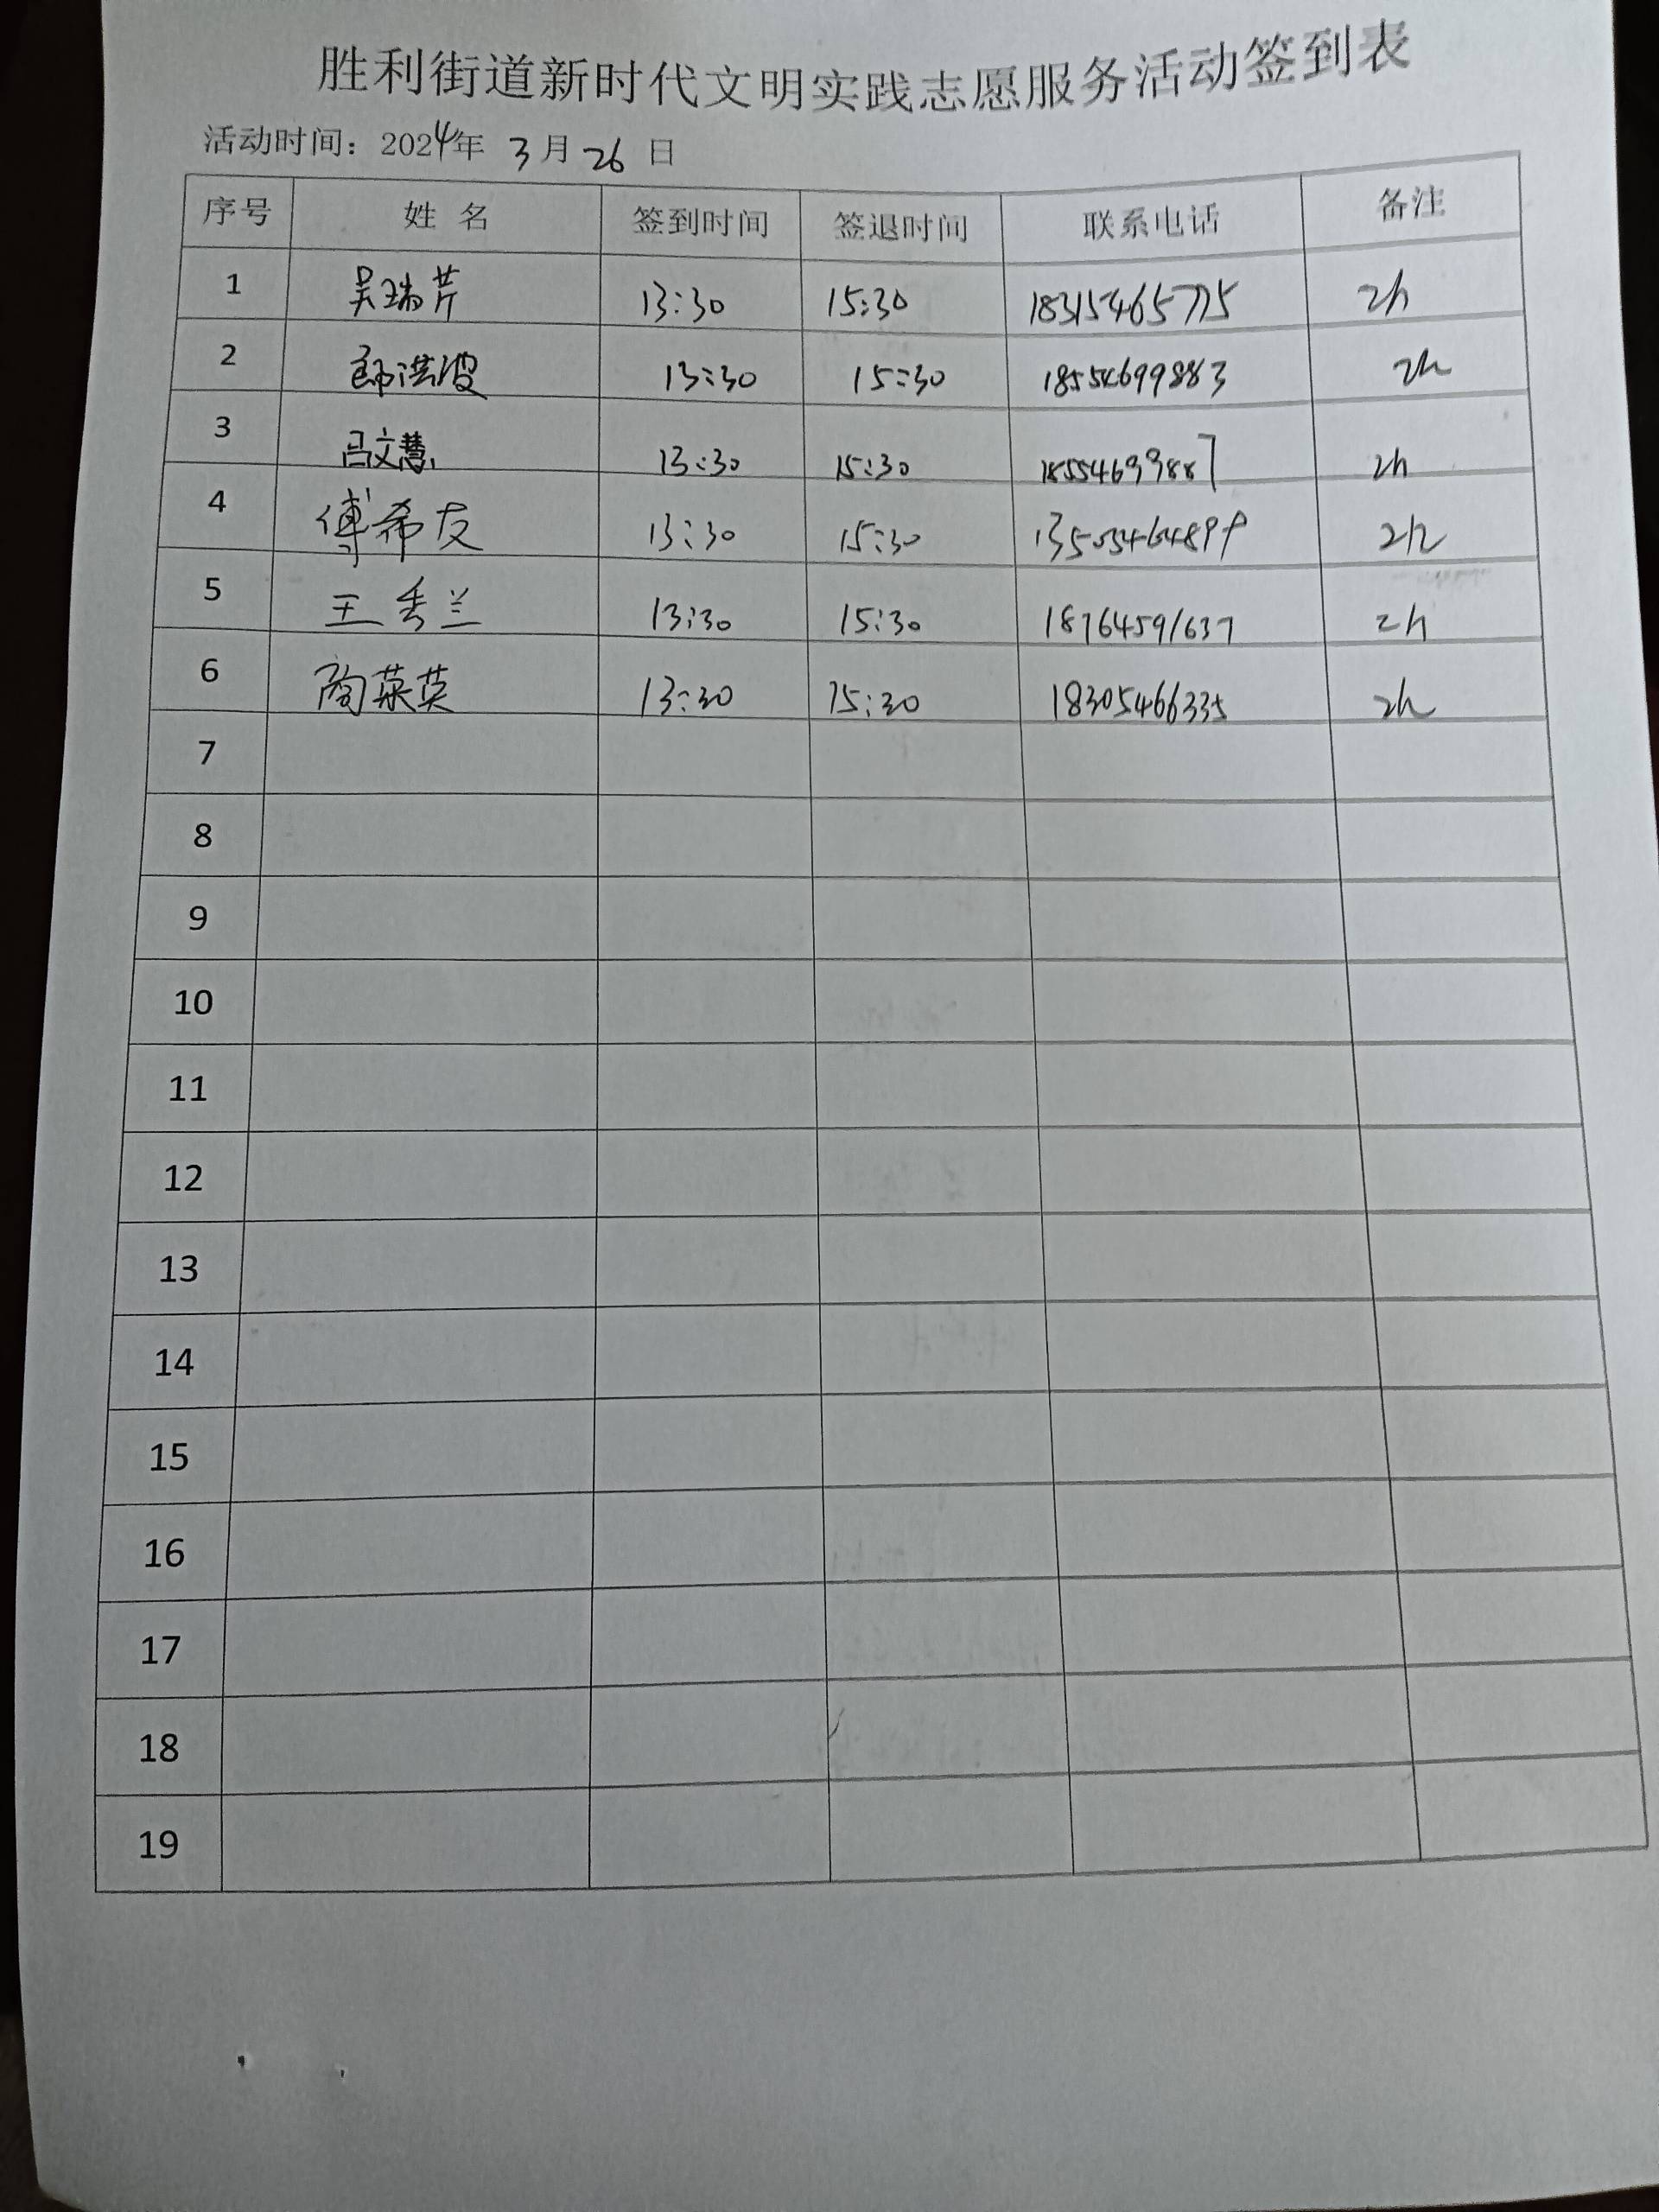 胜利街道新时代文明实践志愿服务活动签到表
活动时间：2024年 3月 26 日
序号 姓 名 签到时间 签退时间 联系电话 备注
1 吴瑞芹 13:30 15:30 18315465775 2h
2 洪波 13:30 15:30 18554699883 2h
3 吕文慧 13:30 15:30 18554699887 2h
4 傅希友 13:30 15:30 2h
5 王秀兰 13:30 15:30 18764591637 2h
6 菜英 13:30 15:30 18305466335 2h
7
8
9
10
11
12
13
14
15
16
17
18
19